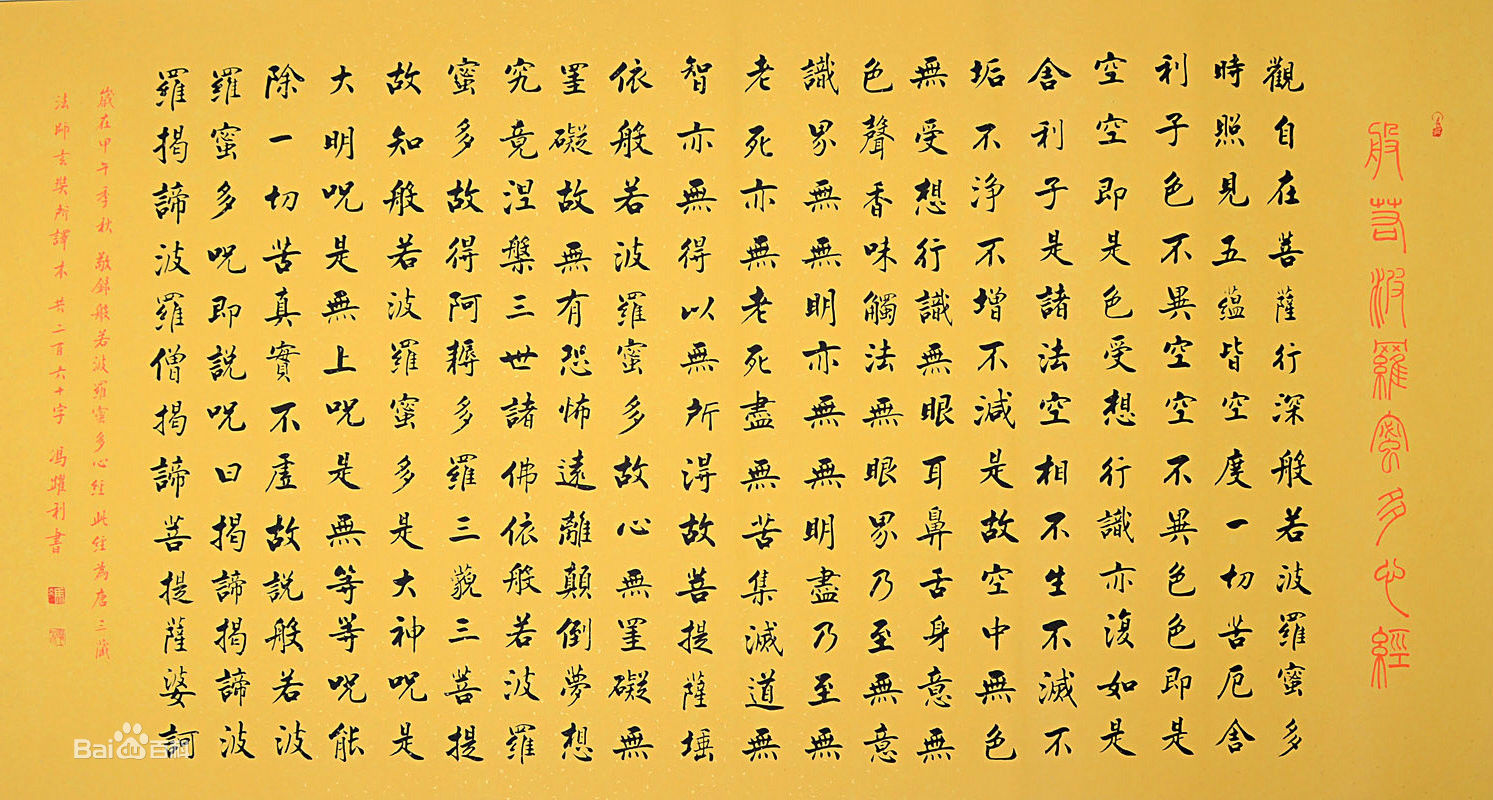 般若波羅蜜多心經
觀自在菩薩行深般若波羅蜜多
時照見五蘊皆空度一切苦厄舍
利子色不異空空不異色色即是
空空即是色受想行識亦復如是
舍利子是諸法空相不生不滅不
垢不淨不增不減是故空中無色
無受想行識無眼耳鼻舌身意無
色聲香味觸法無眼界乃至無意
識界無無明亦無無明盡乃至無
老死亦無老死盡無苦集滅道無
智亦無得以無所得故菩提薩埵
依般若波羅蜜多故心無罣礙無
罣礙故無有恐怖遠離顛倒夢想
究竟涅槃三世諸佛依般若波羅
蜜多故得阿耨多羅三藐三菩提
故知般若波羅蜜多是大神呪是
大明呪是無上呪是無等等呪能
除一切苦真實不虛故説般若波
羅蜜多呪即説呪曰揭諦揭諦波
羅揭諦波羅僧揭諦菩提薩婆訶
歲在甲午季秋 敬錄般若波羅蜜多心經 此經為唐三藏
法師玄奘所譯本 共二百六十字 馮躍利書
Baidu百科